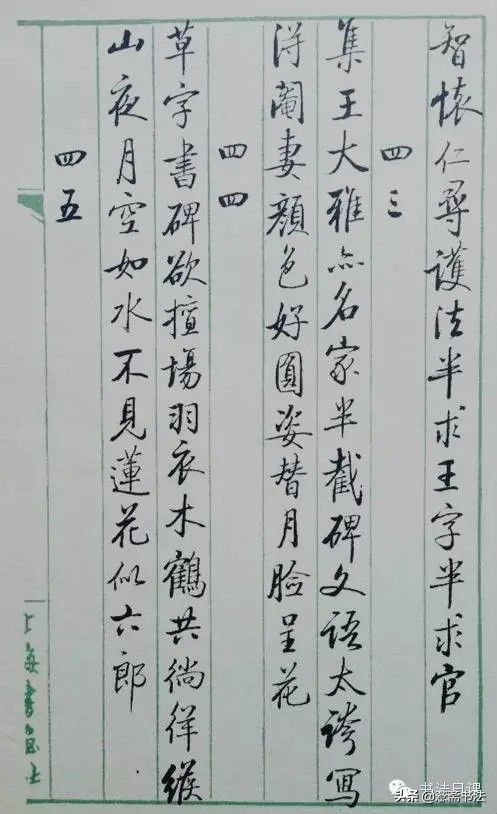 智懷仁尋護法半求王字半求官
四三
集王大雅亦名家半截碑文語太誇寫
得閹妻顏色好圓姿替月臉呈花
四四
草字書碑欲擅場羽衣木鶴共徜徉緱
山夜月空如水不見蓮花似六郎
四五
上海書畫社
书法日课
头条@憨斋书法